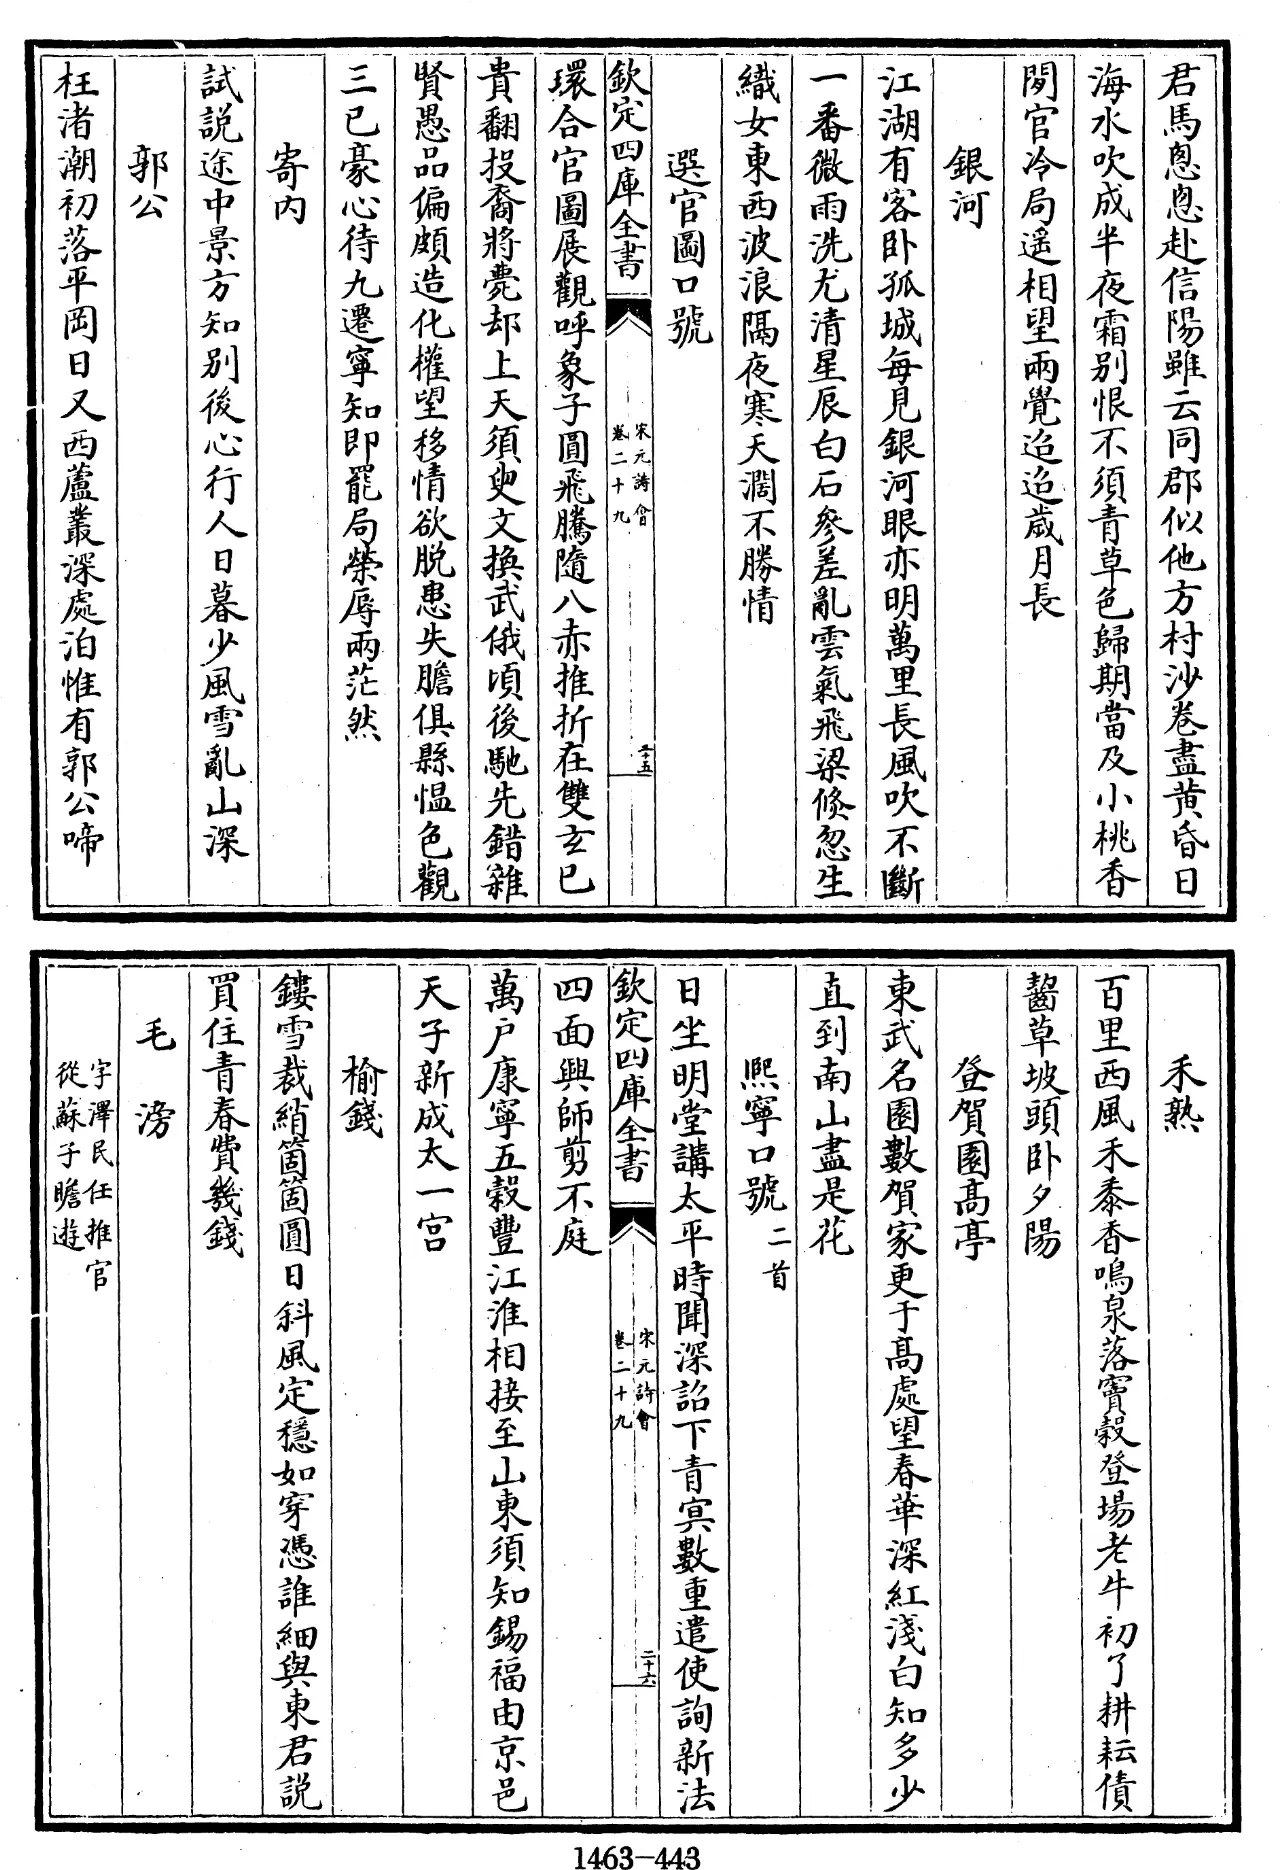 君馬恖恖赴信陽雖云同郡似他方村沙卷盡黄昏日
海水吹成半夜霜别恨不須青草色歸期當及小桃香
閒官冷局遥相望兩覺迢迢歲月長
銀河
江湖有客卧孤城每見銀河眼亦明萬里長風吹不斷
一番微雨洗尤清星辰白石參差亂雲氣飛梁倐忽生
織女東西波浪隔夜寒天濶不勝情
選官圖口號
欽定四庫全書
宋元詩會
卷二十九
二十五
環合官圖展觀呼象子圓飛騰隨八赤推折在雙玄已
貴翻投裔將薨却上天須臾文換武俄頃後馳先錯雜
賢愚品偏頗造化權望移情欲脱患失膽俱縣愠色觀
三已豪心待九遷寧知即罷局榮辱兩茫然
寄内
試説途中景方知别後心行人日暮少風雪亂山深
郭公
枉渚潮初落平岡日又西蘆叢深處泊惟有郭公啼
禾熟
百里西風禾黍香鳴泉落竇榖登場老牛初了耕耘債
齧草坡頭卧夕陽
登賀園髙亭
東武名園數賀家更于髙處望春華深紅淺白知多少
直到南山盡是花
熈寧口號二首
日坐明堂講太平時聞深詔下青㝠數重遣使詢新法
欽定四庫全書
宋元詩會
卷二十九
二十六
四面興師剪不庭
萬户康寧五榖豐江淮相接至山東須知錫福由京邑
天子新成太一宫
榆錢
鏤雪裁綃箇箇圓日斜風定穩如穿憑誰細與東君説
買住青春費幾錢
毛滂
字澤民任推官
從蘇子瞻遊
1463-443